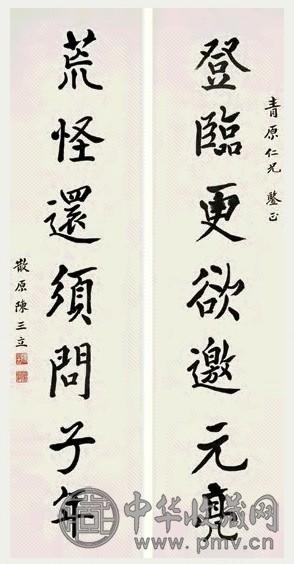 青原仁兄 鑒正
登臨更欲邀元亮
荒怪還須問子年
散原陳三立
中华收藏网
www.pmv.cn